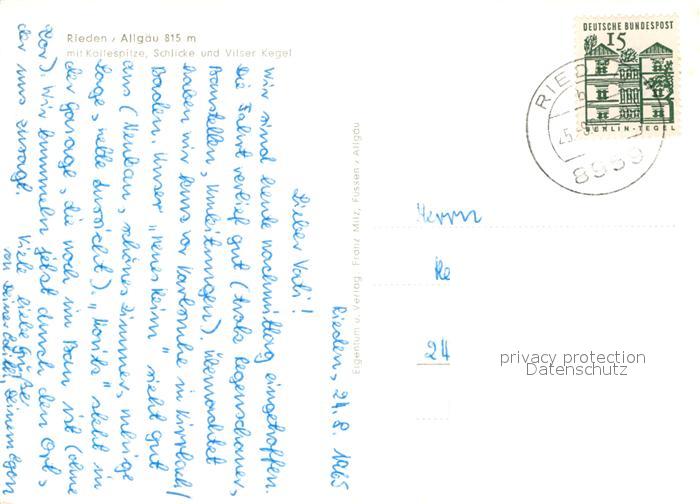 Rieden / Allgäu 815 m
mit Kollespitze, Schlicke und Vilser Kegel
DEUTSCHE BUNDESPOST
15
BERLIN-TEGEL
RIED
b
8959
Rieden, 24. 8. 1965
Lieber Vati!
Wir sind heute nachmittag eingetroffen.
Die Fahrt verlief gut (trotz Regenschauer,
Baustellen, Umleitungen). Übernachtet
haben wir kurz vor Karlsruhe in
Baden. Unser "neues Heim" sieht gut
aus (Neubau, schönes Zimmer, ruhige
Lage, nette Aussicht). "Moritz" steht in
der Garage, die noch im Bau ist (ohne
Tor). Wir bummeln jetzt durch den Ort,
der uns zusagt.
Viele liebe Grüße
von Deiner
Eigentum u. Verlag: Franz Milz, Füssen / Allgäu
Herrn
He
24
privacy protection
Datenschutz